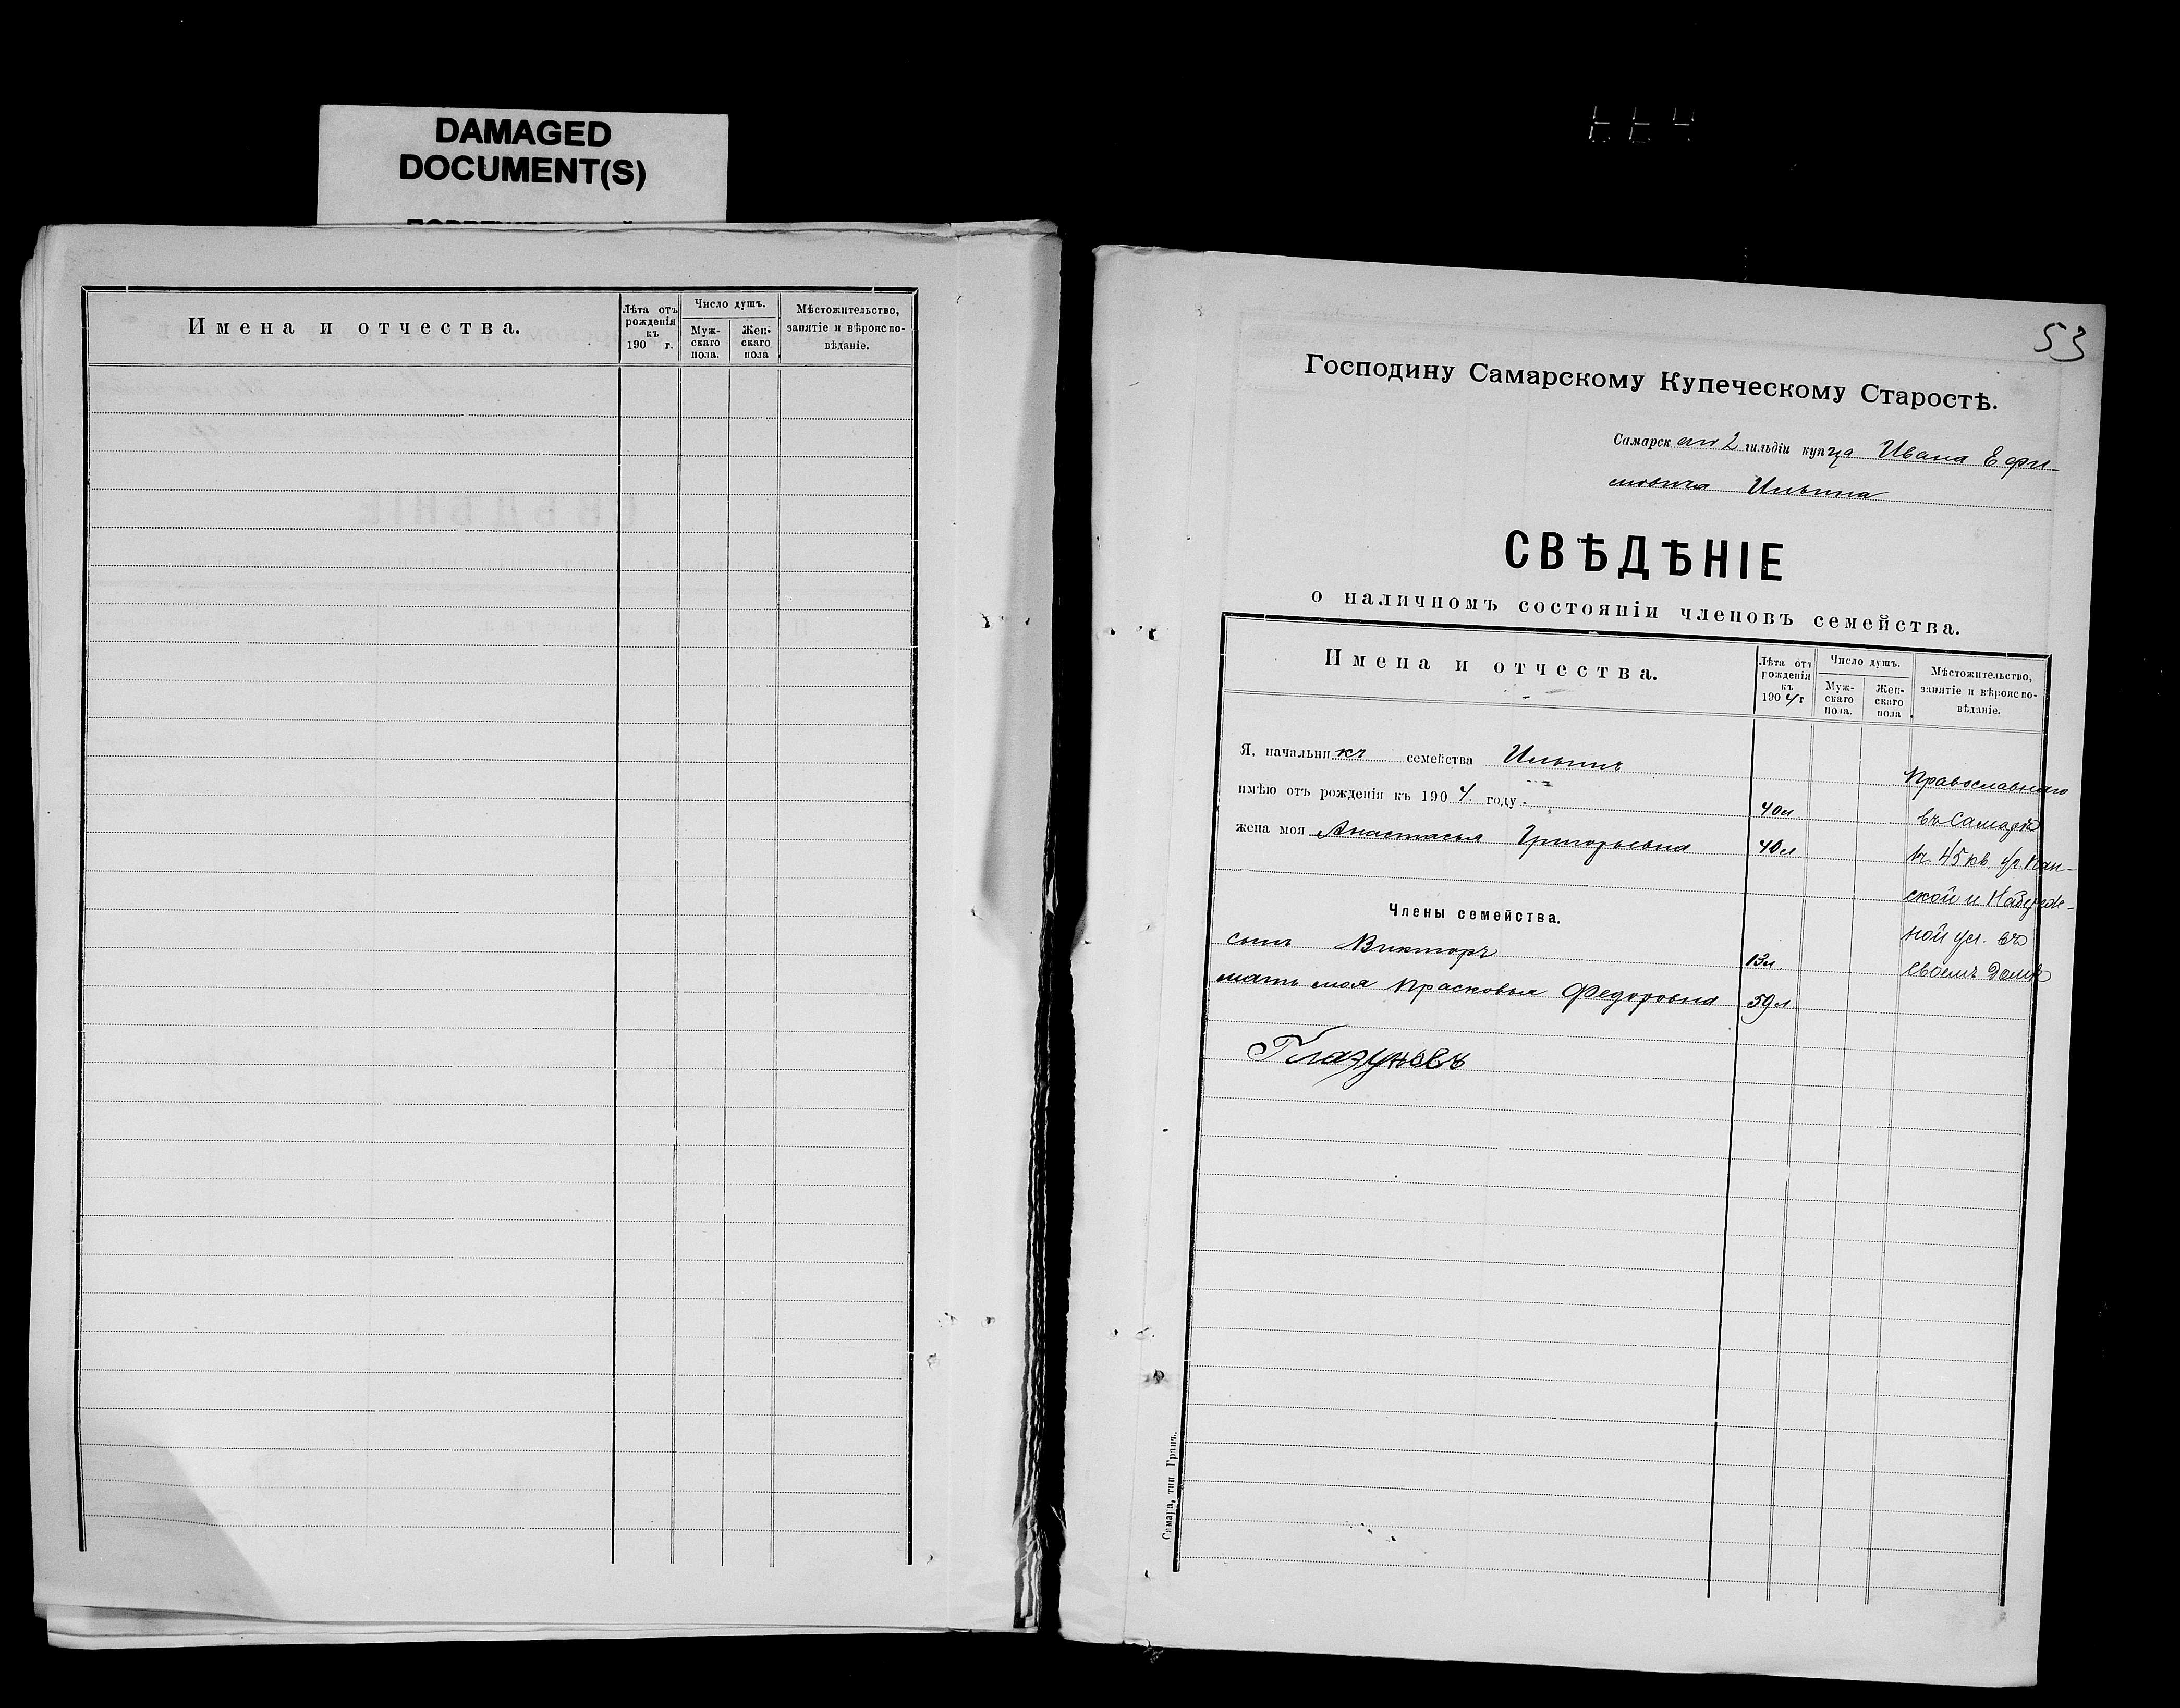 DAMAGED
DOCUMENT(S)
Имена и отчества.
Лѣта отъ рожденія къ 190 г.
Число душъ.
Мужскаго пола.
Женскаго пола
Мѣстожительство, занятіе и вѣроисповѣданіе.
53
Господину Самарскому Купеческому Старостѣ.
Самарскаго 2 гильдіи купца Ивана Ефи-
мовича Ильина
СВѢДѢНІЕ
о наличномъ состояніи членовъ семейства.
Имена и отчества.
Лѣта отъ рожденія къ 1904 г
Число душъ.
Мужскаго пола.
Женскаго пола
Мѣстожительство, занятіе и вѣроисповѣданіе.
Я, начальникъ семейства Ильинъ
Православнаго
имѣю отъ рожденія къ 1904 году. 40 л
въ Самарѣ
жена моя Анастасья Григорьевна 40 л.
въ 45 кв. уг. Пан-
ской и Набереж-
Члены семейства.
ной ул. въ
сынъ Викторъ 13 л.
своемъ домѣ
мать моя Прасковья Федоровна 59 л.
Глазуновъ
Самара, тип. Гранъ.